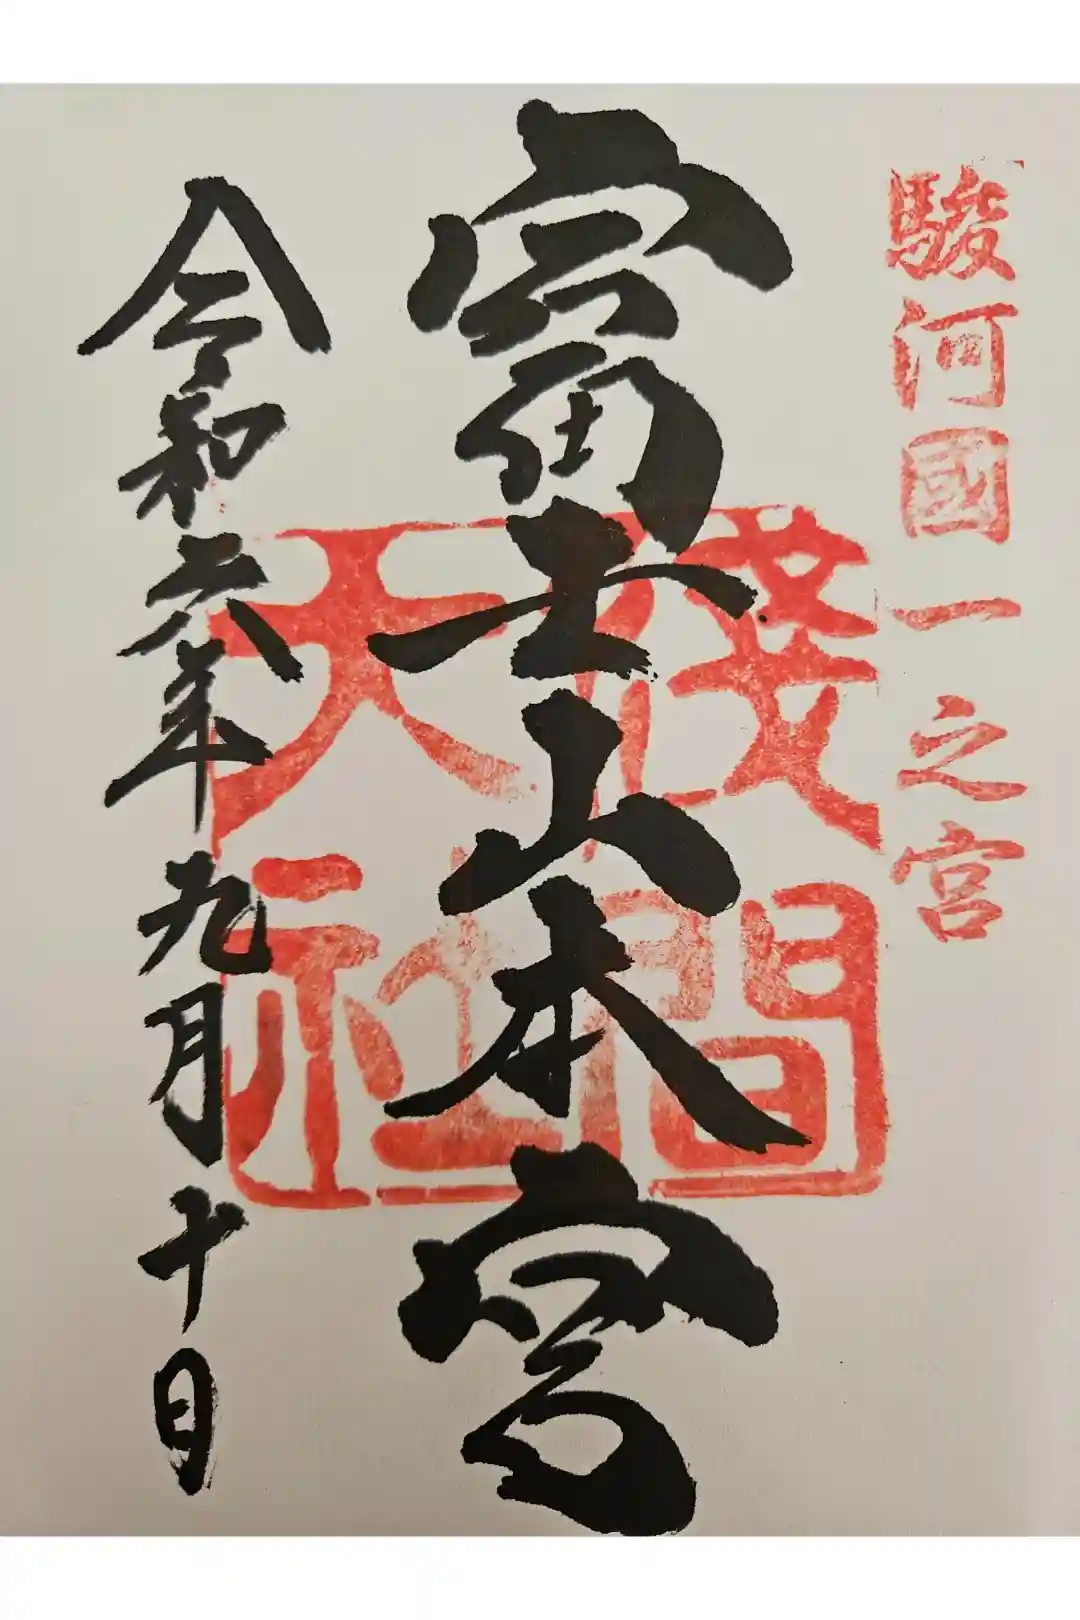 駿河國一之宮
富士山本宮
淺間
大社
令和六年九月十日